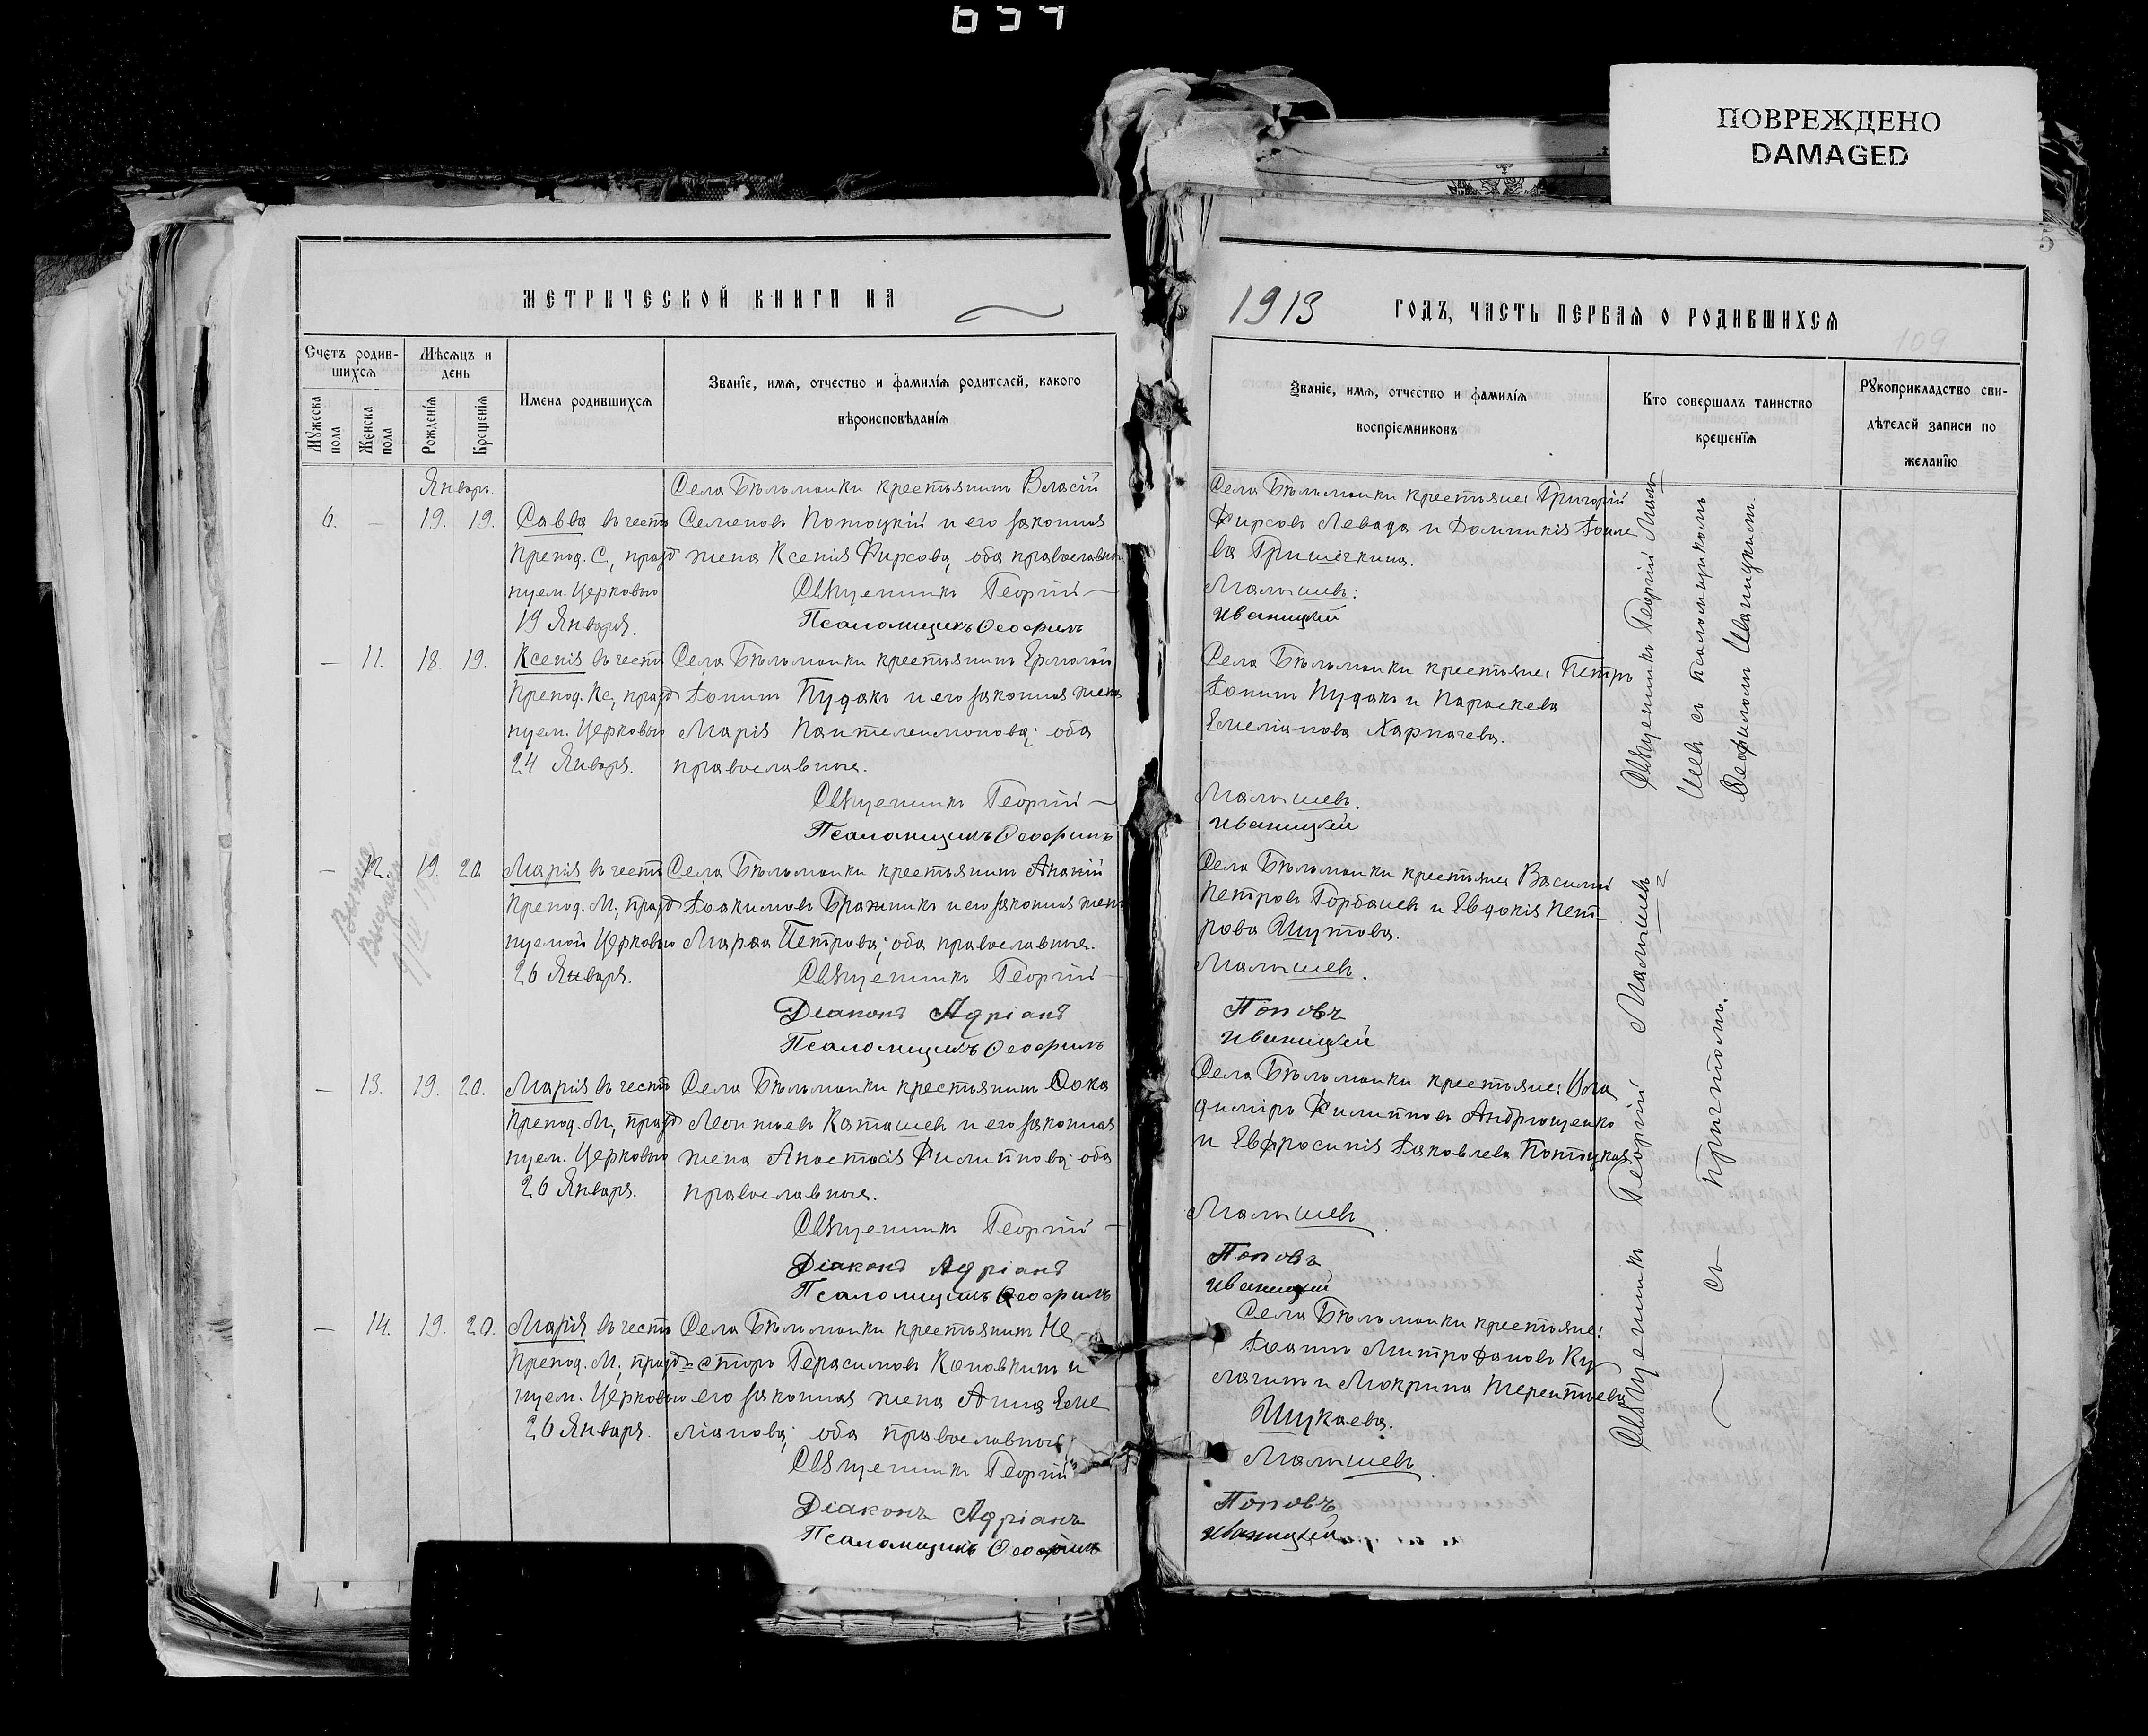 ПОВРЕЖДЕНО
DAMAGED
5
МЕТРИЧЕСКОЙ КНИГИ НА
1913 ГОДЪ, ЧАСТЬ ПЕРВАЯ О РОДИВШИХСЯ
109
Счетъ родив-
шихся
Мужеска пола
Женска пола
Мѣсяцъ и
день
Рожденія
Крещенія
Имена родившихся
Званіе, имя, отчество и фамилія родителей, какого
вѣроисповѣданія
Званіе, имя, отчество и фамилія
воспріемниковъ
Кто совершалъ таинство
крещенія
Рукоприкладство сви-
дѣтелей записи по
желанію
Январь.
6. — 19. 19.
Савва въ честь
Препод. С, празд
нуем. Церковью
19 Января.
Села Бѣльманки крестьянинъ Власій
Семеновъ Потоцкій и его законная
жена Ксенія Фирсова, оба православн.
Священникъ Георгій —
Псаломщикъ Ѳеофилъ
Села Бѣльманки крестьяне: Григорій
Фирсовъ Левада и Домникія Іоиле
ва Гришечкина.
Малышевъ.
Иваницкій
— 11. 18. 19.
Ксенія въ честь
Препод. Кс, празд
нуем. Церковью
24 Января.
Села Бѣльманки крестьянинъ Ермолай
Іонинъ Пудакъ и его законная жена
Марія Пантелеимонова; оба
православные.
Священникъ Георгій —
Псаломщикъ Ѳеофилъ
Села Бѣльманки крестьяне: Петръ
Іонинъ Пудакъ и Параскева
Емеліанова Харпачева.
Малышевъ.
Иваницкій
Священникъ Георгій Малы-
шевъ съ псаломщикомъ
Ѳеофиломъ Иваницкимъ.
— 12. 19. 20.
Марія въ честь
Препод. М, празд
нуемой Церковью
26 Января.
Села Бѣльманки крестьянинъ Ананій
Іоакимовъ Бражникъ и его законная жена
Марѳа Петрова; оба православные.
Священникъ Георгій —
Діаконъ Адріанъ
Псаломщикъ Ѳеофилъ
Села Бѣльманки крестьяне: Василій
Петровъ Горбачевъ и Евдокія Пет-
рова Шутова.
Малышевъ.
Поповъ
Иваницкій
— 13. 19. 20.
Марія въ честь
Препод. М, празд
нуем. Церковью
26 Января.
Села Бѣльманки крестьянинъ Ѳока
Леонтьевъ Каташевъ и его законная
жена Анастасія Филиппова; оба
православные.
Священникъ Георгій —
Діаконъ Адріанъ
Псаломщикъ Ѳеофилъ
Села Бѣльманки крестьяне: Вла
диміръ Филипповъ Андрющенко
и Евфросинія Іаковлева Потоцкая.
Малышевъ
Поповъ
Иваницкій
— 14. 19. 20.
Марія въ честь
Препод. М, празд
нуем. Церковью
26 Января.
Села Бѣльманки крестьянинъ Не
сторъ Герасимовъ Коновкинъ и
его законная жена Анна Еме
ліанова; оба православные
Священникъ Георгій
Діаконъ Адріанъ
Псаломщикъ Ѳеофилъ
Села Бѣльманки крестьяне:
Іоаннъ Митрофановъ Ку
лагинъ и Мокрина Терентьева
Шукаева.
Малышевъ.
Поповъ
Иваницкій
Священникъ Георгій Малышевъ
съ Причтомъ.